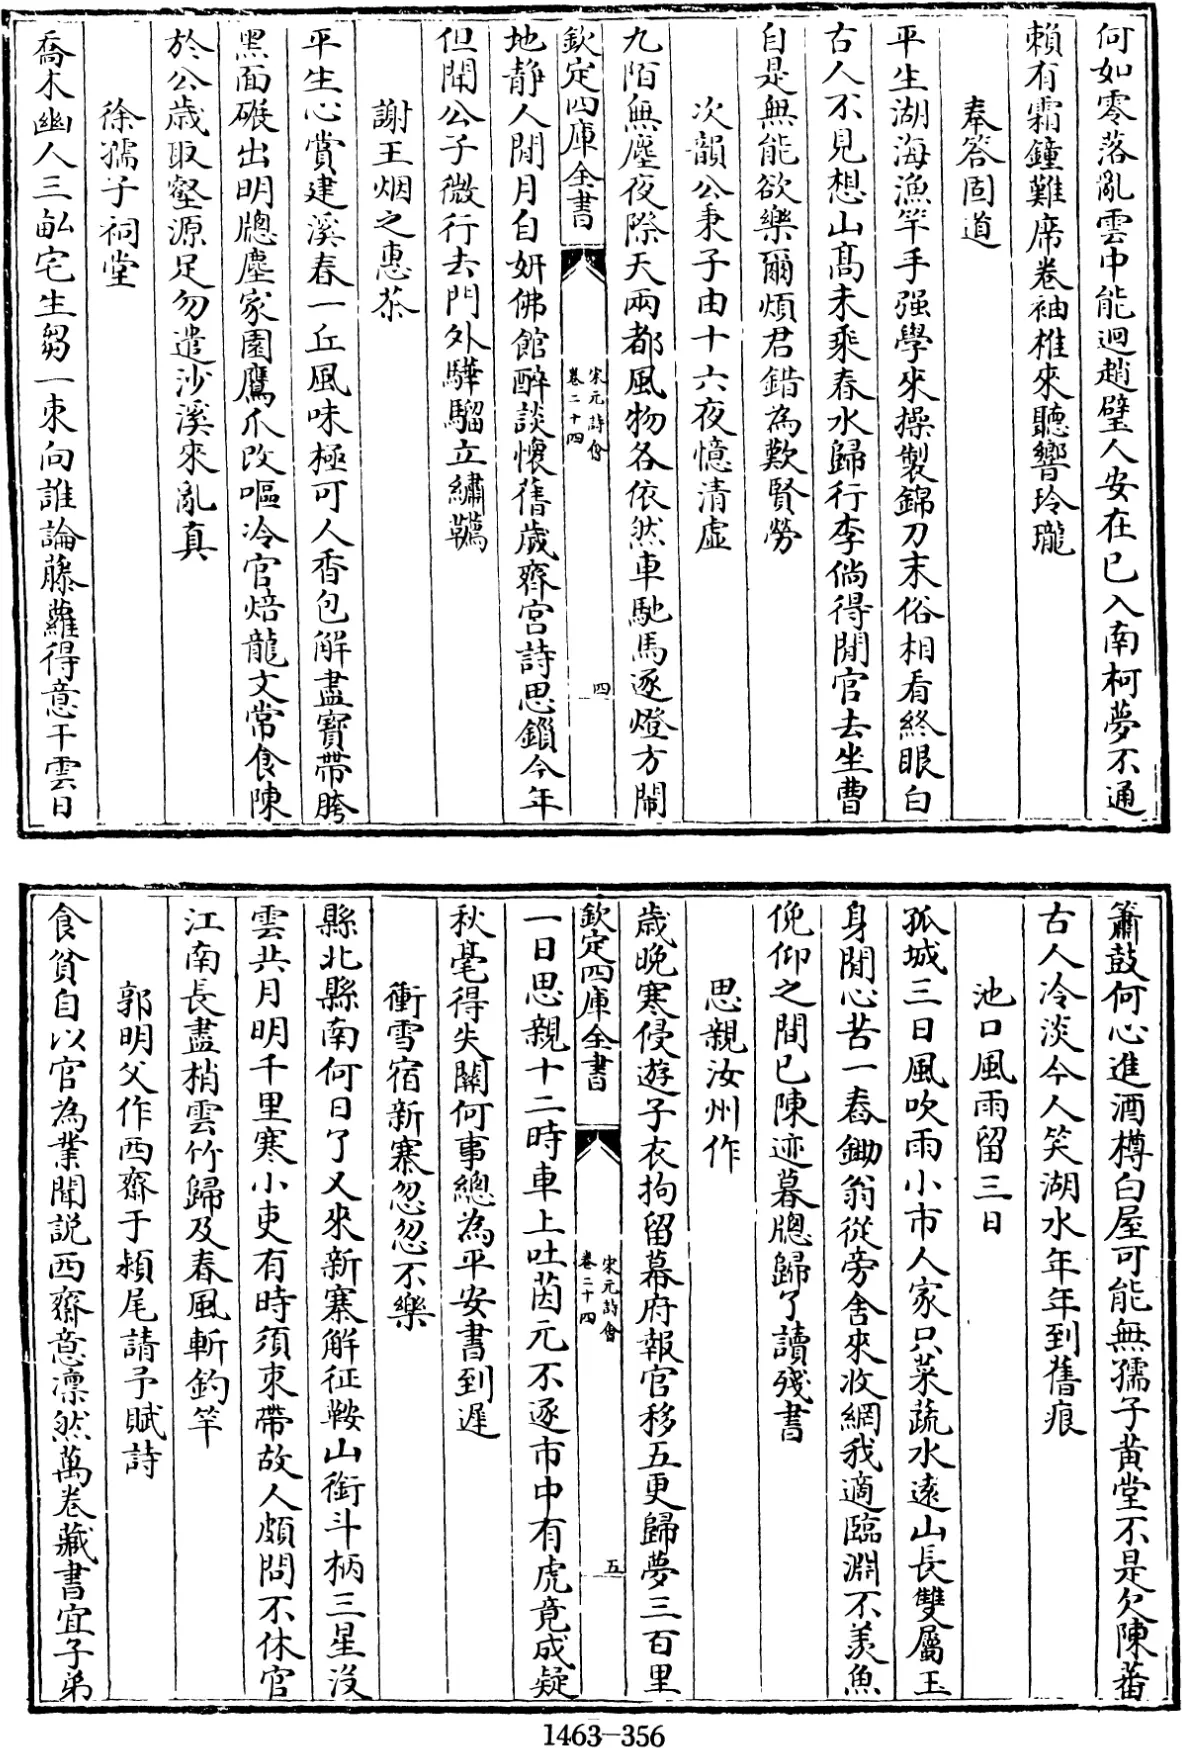 何如零落亂雲中能迴趙璧人安在已入南柯夢不通
賴有霜鐘難席卷袖椎來聽響玲瓏
奉答固道
平生湖海漁竿手强學來操製錦刀末俗相看終眼白
古人不見想山髙未乘春水歸行李倘得閒官去坐曹
自是無能欲樂爾煩君錯為歎賢勞
次韻公秉子由十六夜憶清虛
九陌無塵夜際天兩都風物各依然車馳馬逐燈方鬧
欽定四庫全書
宋元詩會
卷二十四
四
地静人閒月自妍佛館醉談懷舊歲齊宮詩思鎖今年
但聞公子微行去門外驊騮立繡韉
謝王烟之惠茶
平生心賞建溪春一丘風味極可人香包解盡寶帶胯
黑面碾出明牕塵家園鷹爪改嘔冷官焙龍文常食陳
於公歲取壑源足勿遣沙溪來亂真
徐孺子祠堂
喬木幽人三畝宅生芻一束向誰論藤蘿得意干雲日
簫鼓何心進酒樽白屋可能無孺子黄堂不是欠陳蕃
古人冷淡今人笑湖水年年到舊痕
池口風雨留三日
孤城三日風吹雨小市人家只菜蔬水遠山長雙屬玉
身閒心苦一舂鋤翁從旁舍來收網我適臨淵不羨魚
俛仰之間已陳迹暮牕歸了讀殘書
思親汝州作
歲晚寒侵遊子衣拘留幕府報官移五更歸夢三百里
欽定四庫全書
宋元詩會
卷二十四
五
一日思親十二時車上吐茵元不逐市中有虎竟成疑
秋毫得失關何事總為平安書到遲
衝雪宿新寨忽忽不樂
縣北縣南何日了又來新寨解征鞍山銜斗柄三星沒
雲共月明千里寒小吏有時須束帶故人頗問不休官
江南長盡梢雲竹歸及春風斬釣竿
郭明父作西齋于潁尾請予賦詩
食貧自以官為業聞説西齋意凛然萬卷藏書宜子弟
1463-356